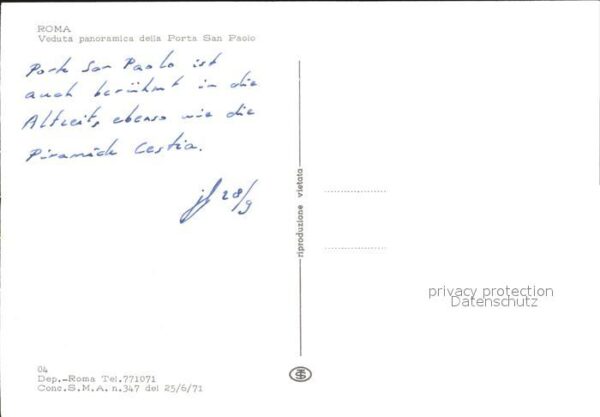 ROMA
Veduta panoramica della Porta San Paolo
Porta San Paolo ist
auch berühmt in die
Altzeit, ebenso wie die
Piramide Cestia.
28/9
riproduzione vietata
privacy protection
Datenschutz
04
Dep.-Roma Tel.771071
Conc.S.M.A. n.347 del 25/6/71